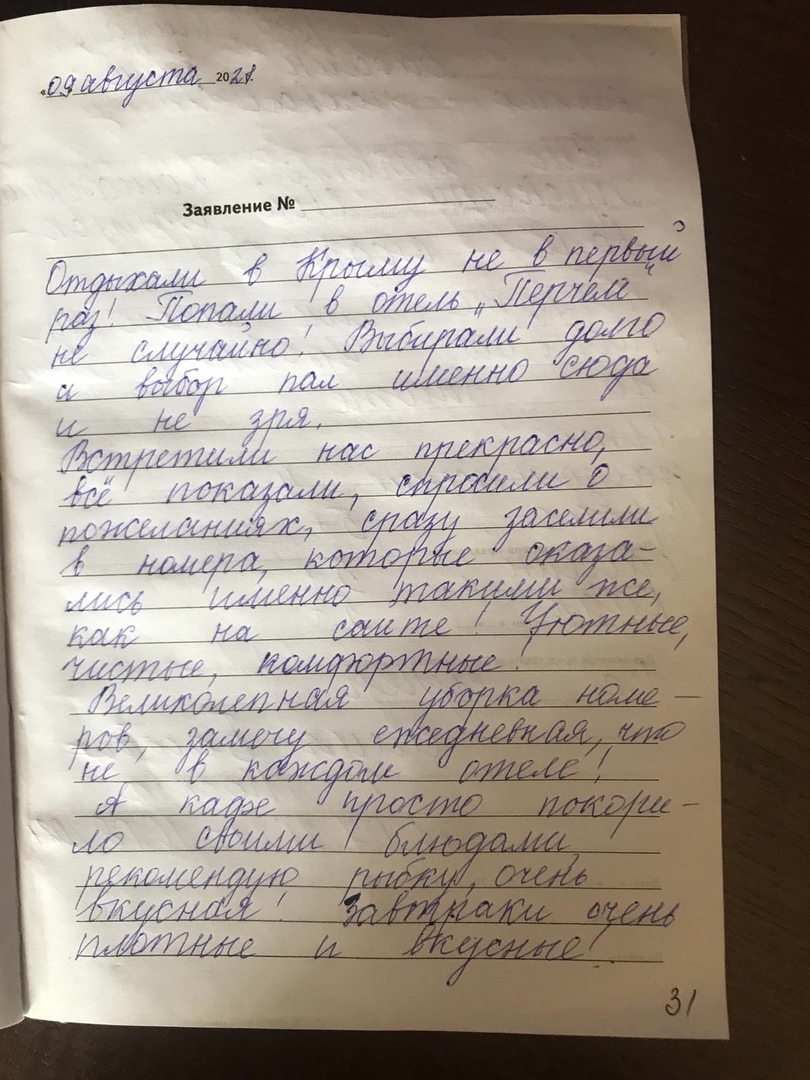 «09 августа 2021г.
Заявление №
Отдыхали в Крыму не в первый
раз! Попали в отель „Перчем“
не случайно! Выбирали долго
и выбор пал именно сюда
и не зря.
Встретили нас прекрасно,
всё показали, спросили о
пожеланиях, сразу заселили
в номера, которые оказа-
лись именно такими же,
как на сайте! Уютные,
чистые, комфортные!
Великолепная уборка номе-
ров, замечу ежедневная, что
не в каждом отеле!
А кафе просто покори-
ло своими блюдами,
рекомендую рыбку, очень
вкусная! Завтраки очень
плотные и вкусные!
31